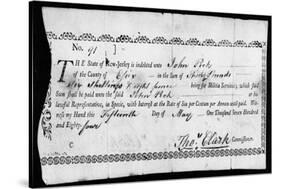 No. 91
THE State of New-Jersey is indebted unto John Peck
of the County of Essex in the Sum of Thirty Pounds
Six Shillings & Eight pence being for Militia Services, which said
Sum shall be paid unto the said John Peck or his
lawful Representatives, in Specie, with Interest at the Rate of Six per Centum per Annum until paid. Witness
my Hand this Fifteenth Day of May One Thousand Seven Hundred
and Eighty four
C
Thos. Clark Commissioner.